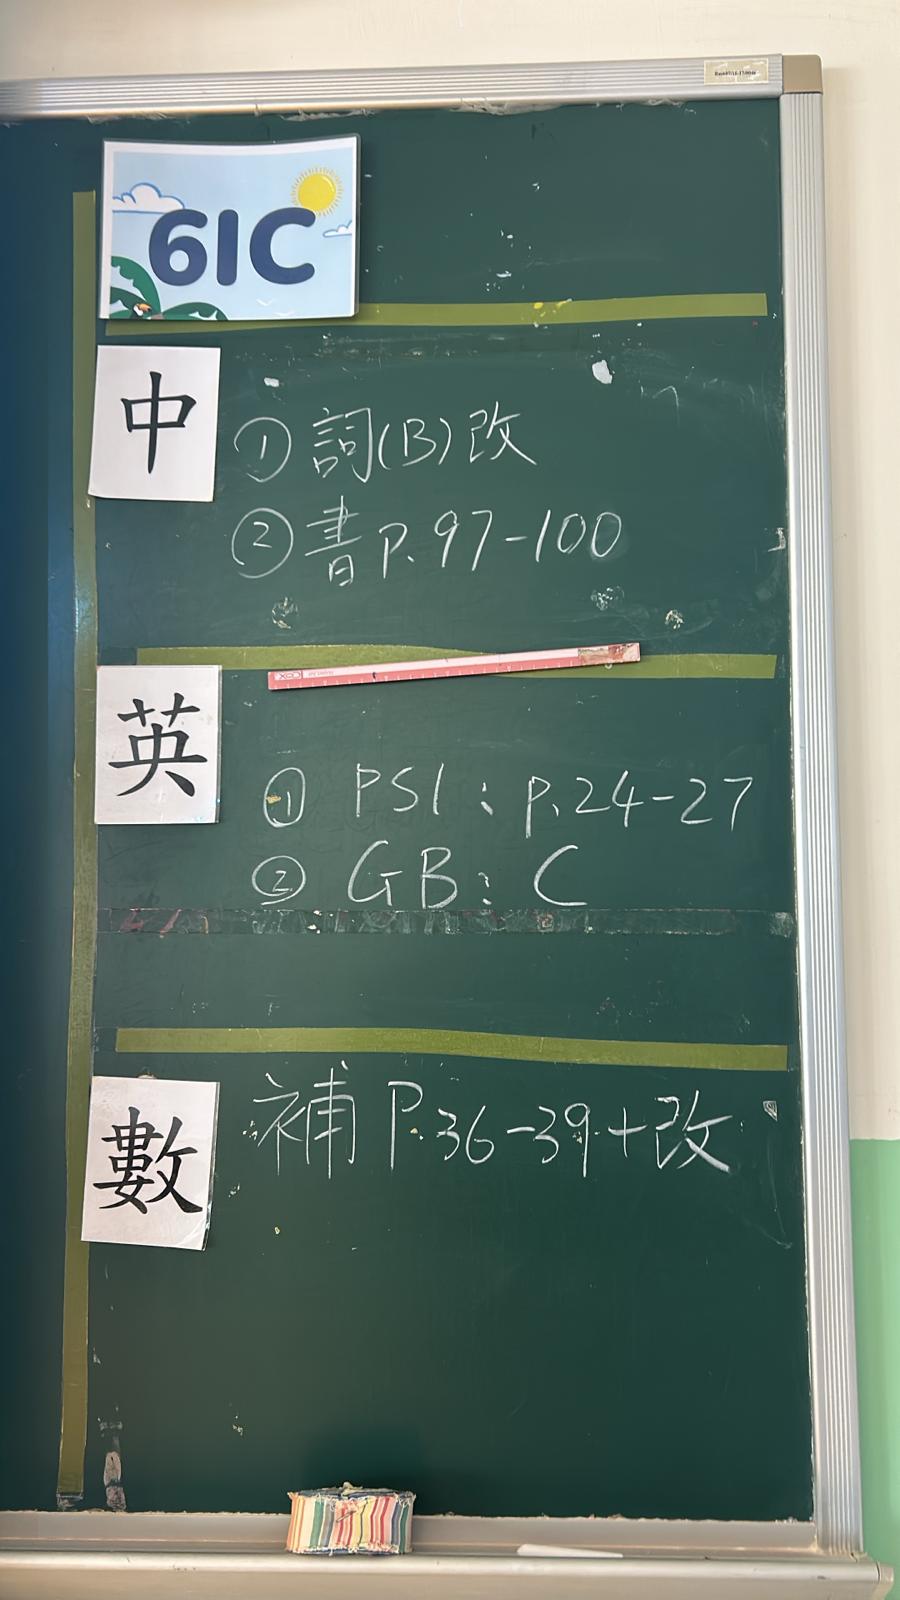 61C
中
① 詞(B)改
② 書P.97-100
英
① PS1 : p.24-27
② GB : C
數
補 P.36-39+改